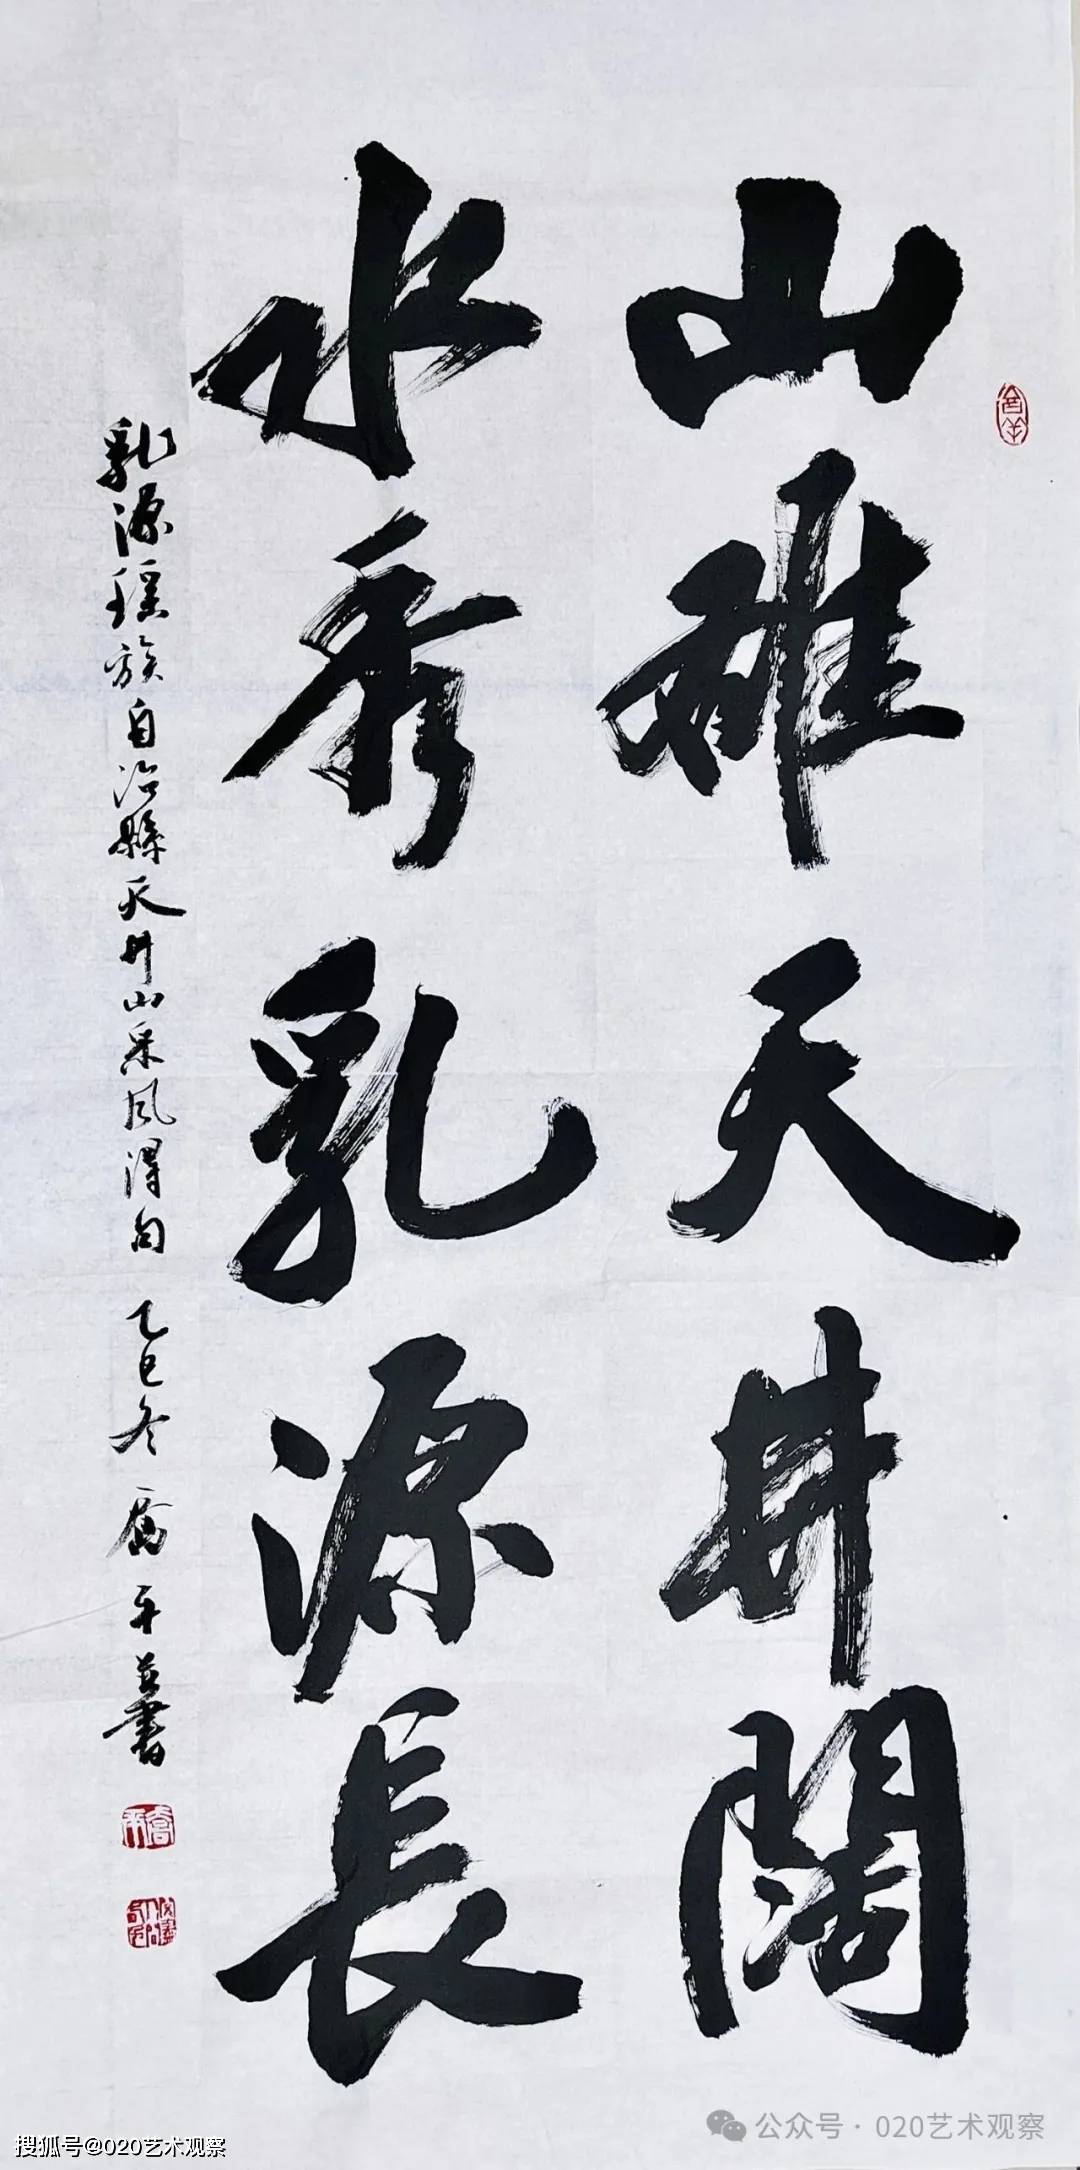 山雄天井闊
水秀乳源長
乳源瑶族自治縣天井山采风得句 乙巳冬 喬平並書
公众号 · 020艺术观察
搜狐号@020艺术观察